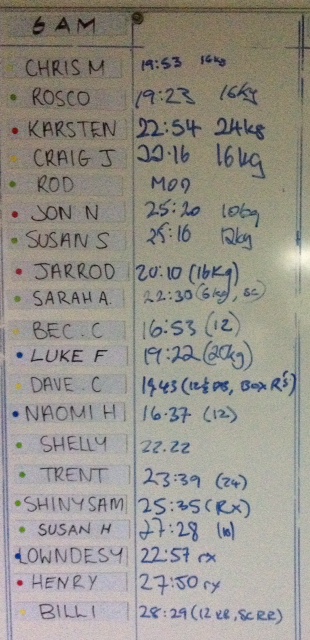 6 AM
CHRIS M 19:53 16kg
ROSCO 19:23 16kg
KARSTEN 22:54 24kg
CRAIG J 22:16 16kg
ROD MOD
JON N 25:20
SUSAN S 25:16 12kg
JARROD 20:10 (16kg)
SARAH A. 22:30 (6kg, SC)
BEC. C 16:53 (12)
LUKE F 19:22 (20kg)
DAVE. C (12½ DB, BOX R's)
NAOMI H 16.37 (12)
SHELLY 22.22
TRENT 23:39 (24)
SHINY SAM 25:35 (Rx)
SUSAN H 27:28
LOWNDESY 22:57 rx
HENRY 27:50 rx
BILL 28:29 (12KB, SC RR)